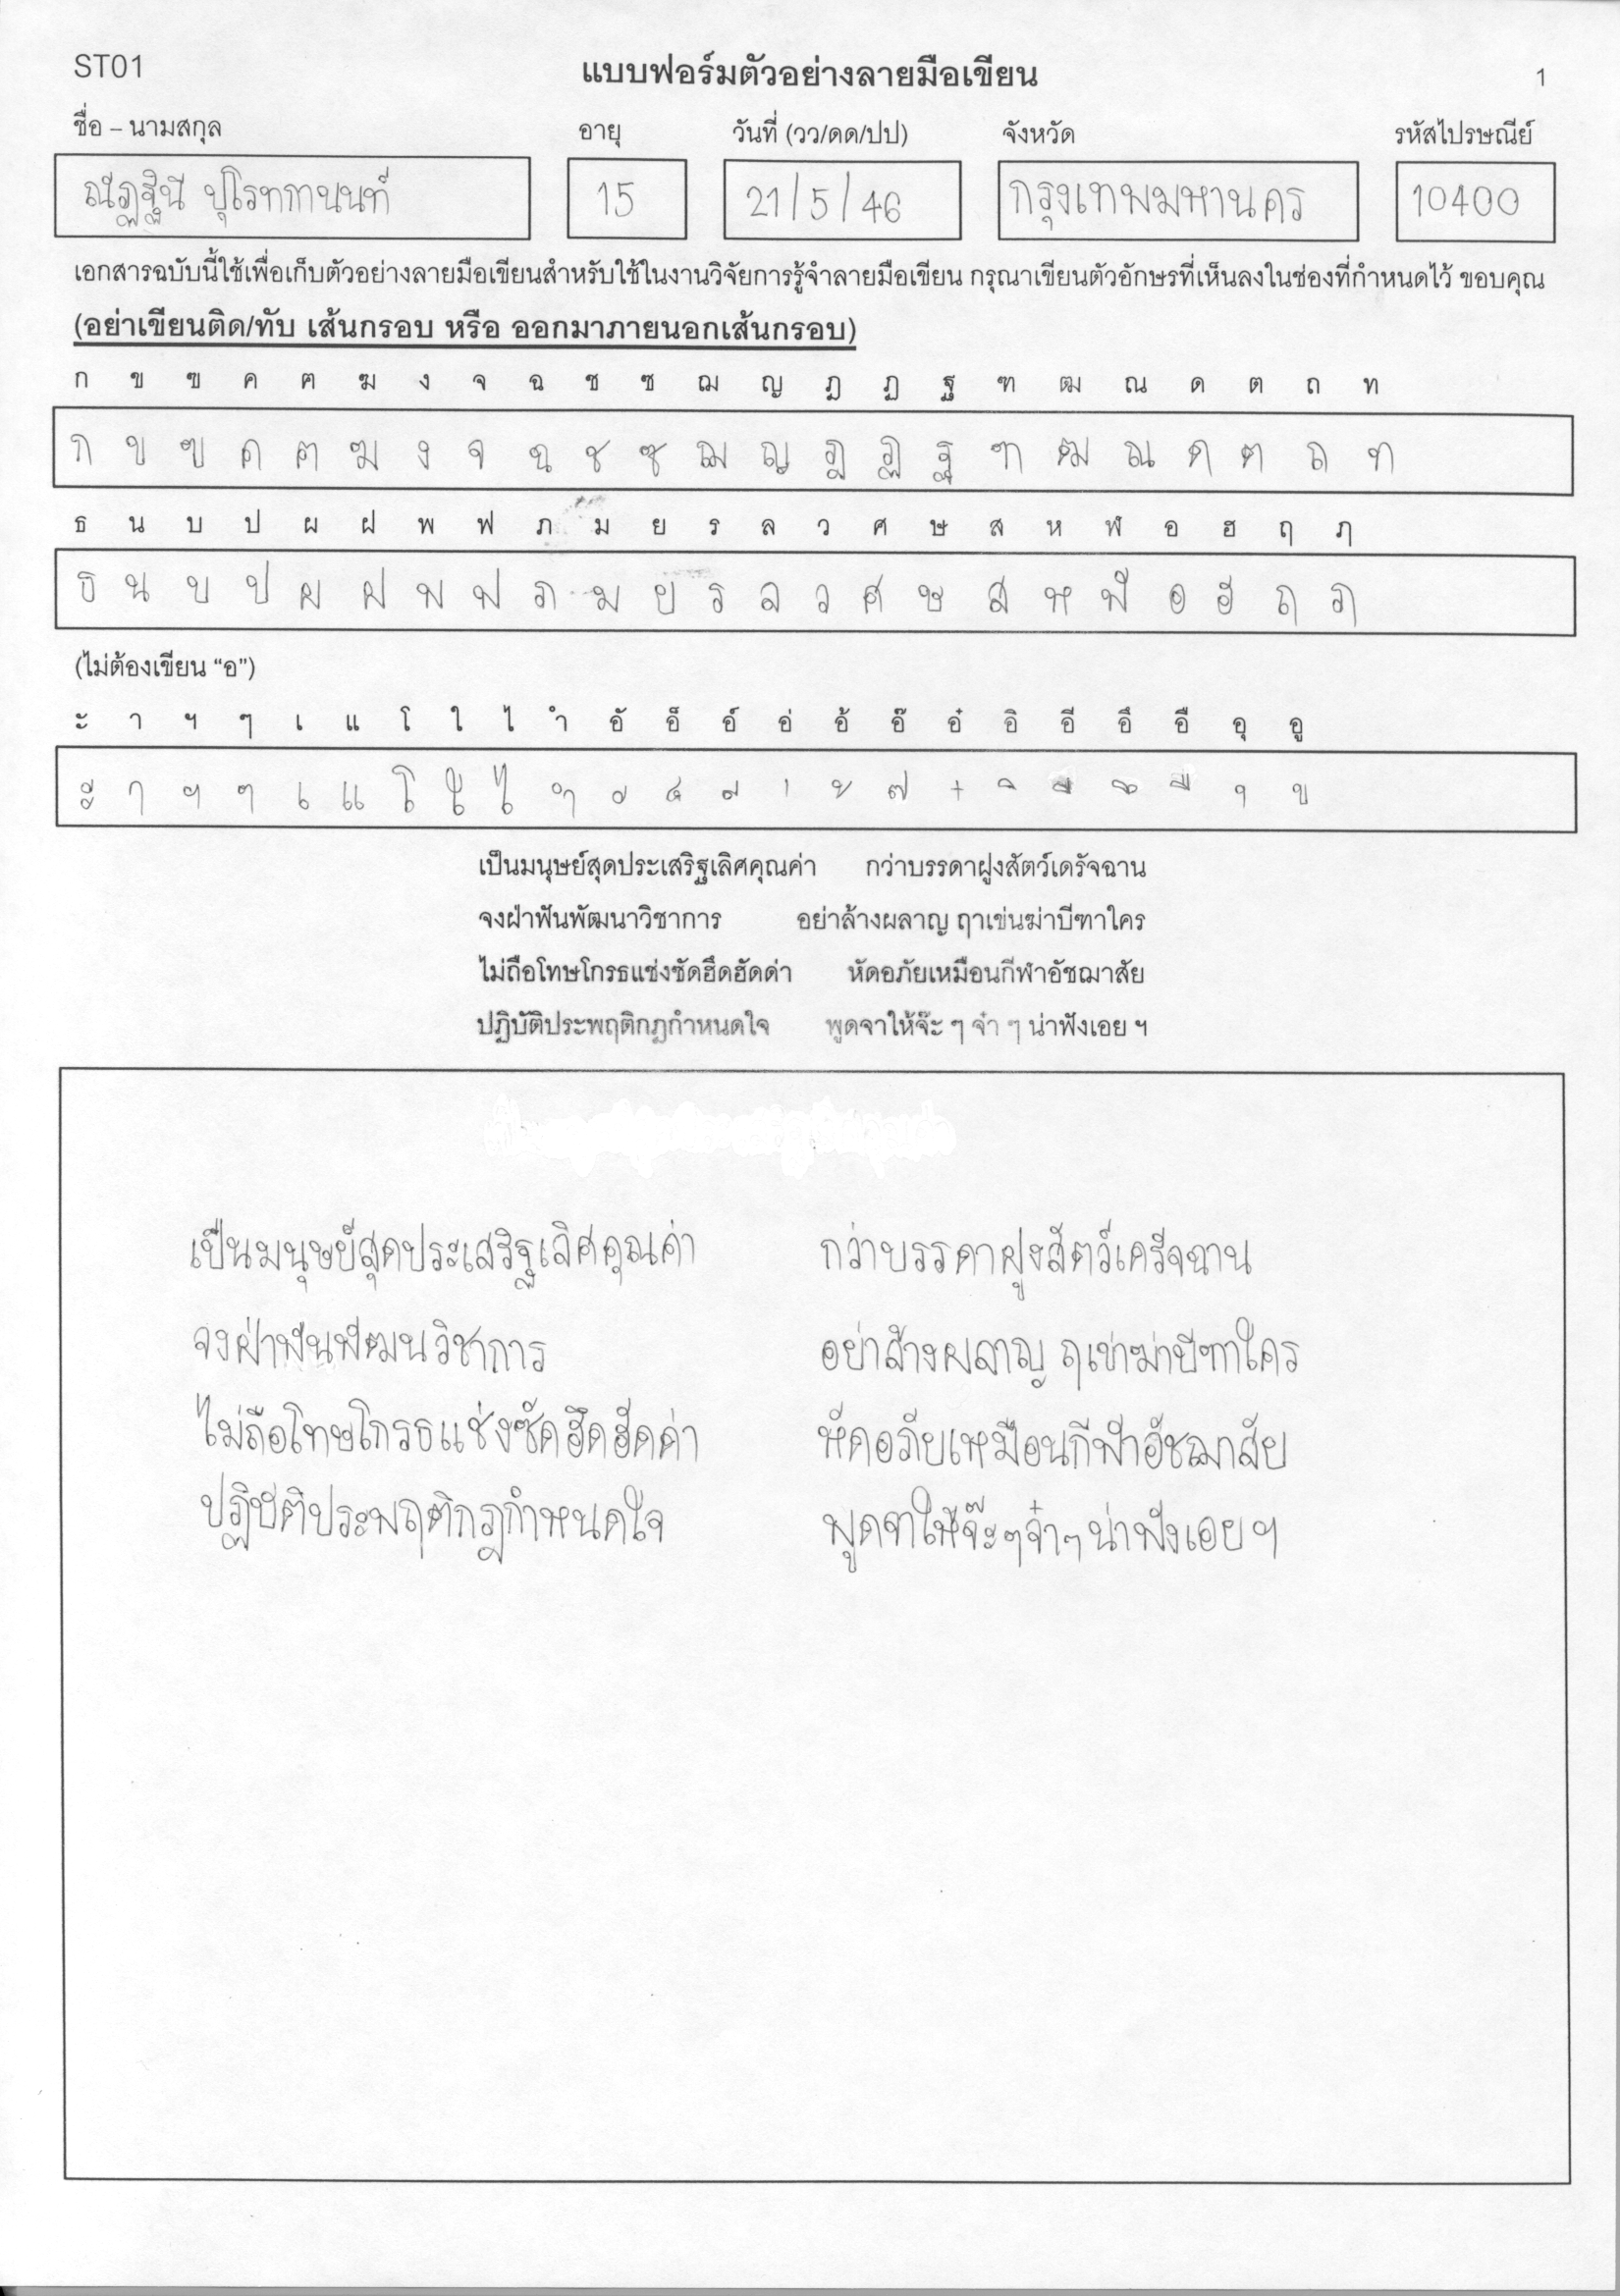 ST01 แบบฟอร์มตัวอย่างลายมือเขียน 1
ชื่อ – นามสกุล อายุ วันที่ (วว/ดด/ปป) จังหวัด รหัสไปรษณีย์
ณัฏฐินี 15 21/5/46 กรุงเทพมหานคร 10400
เอกสารฉบับนี้ใช้เพื่อเก็บตัวอย่างลายมือเขียนสำหรับใช้ในงานวิจัยการรู้จำลายมือเขียน กรุณาเขียนตัวอักษรที่เห็นลงในช่องที่กำหนดไว้ ขอบคุณ
(อย่าเขียนติด/ทับ เส้นกรอบ หรือ ออกมาภายนอกเส้นกรอบ)
ก ข ฃ ค ฅ ฆ ง จ ฉ ช ซ ฌ ญ ฎ ฏ ฐ ฑ ฒ ณ ด ต ถ ท
ก ข ฃ ค ฅ ฆ ง จ ฉ ช ซ ฌ ญ ฎ ฏ ฐ ฑ ฒ ณ ด ต ถ ท
ธ น บ ป ผ ฝ พ ฟ ภ ม ย ร ล ว ศ ษ ส ห ฬ อ ฮ ฤ ฦ
ธ น บ ป ผ ฝ พ ฟ ภ ม ย ร ล ว ศ ษ ส ห ฬ อ ฮ ฤ ฦ
(ไม่ต้องเขียน “อ”)
ะ า ฯ ๆ เ แ โ ใ ไ ำ อั อ็ อ์ อ่ อ้ อ๊ อ๋ อิ อี อึ อื อุ อู
ะ า ฯ ๆ เ แ โ ใ ไ ำ ั ็ ์ ่ ้ ๊ ๋ ิ ี ึ ื ุ ู
เป็นมนุษย์สุดประเสริฐเลิศคุณค่า กว่าบรรดาฝูงสัตว์เดรัจฉาน
จงฝ่าฟันพัฒนาวิชาการ อย่าล้างผลาญ ฤาเข่นฆ่าบีฑาใคร
ไม่ถือโทษโกรธแช่งซัดฮึดฮัดด่า หัดอภัยเหมือนกีฬาอัชฌาสัย
ปฏิบัติประพฤติกฎกำหนดใจ พูดจาให้จ๊ะ ๆ จ๋า ๆ น่าฟังเอย ฯ
เป็นมนุษย์สุดประเสริฐเลิศคุณค่า กว่าบรรดาฝูงสัตว์เดรัจฉาน
จงฝ่าฟันพัฒนวิชาการ อย่าล้างผลาญ ฤเข่าฆ่าบีฑาใคร
ไม่ถือโทษโกรธแช่งซัดฮึดฮัดด่า หัดอภัยเหมือนกีฬาอัชฌาสัย
ปฏิบัติประพฤติกฎกำหนดใจ พูดจาให้จ๊ะๆจ๋าๆน่าฟังเอยฯ